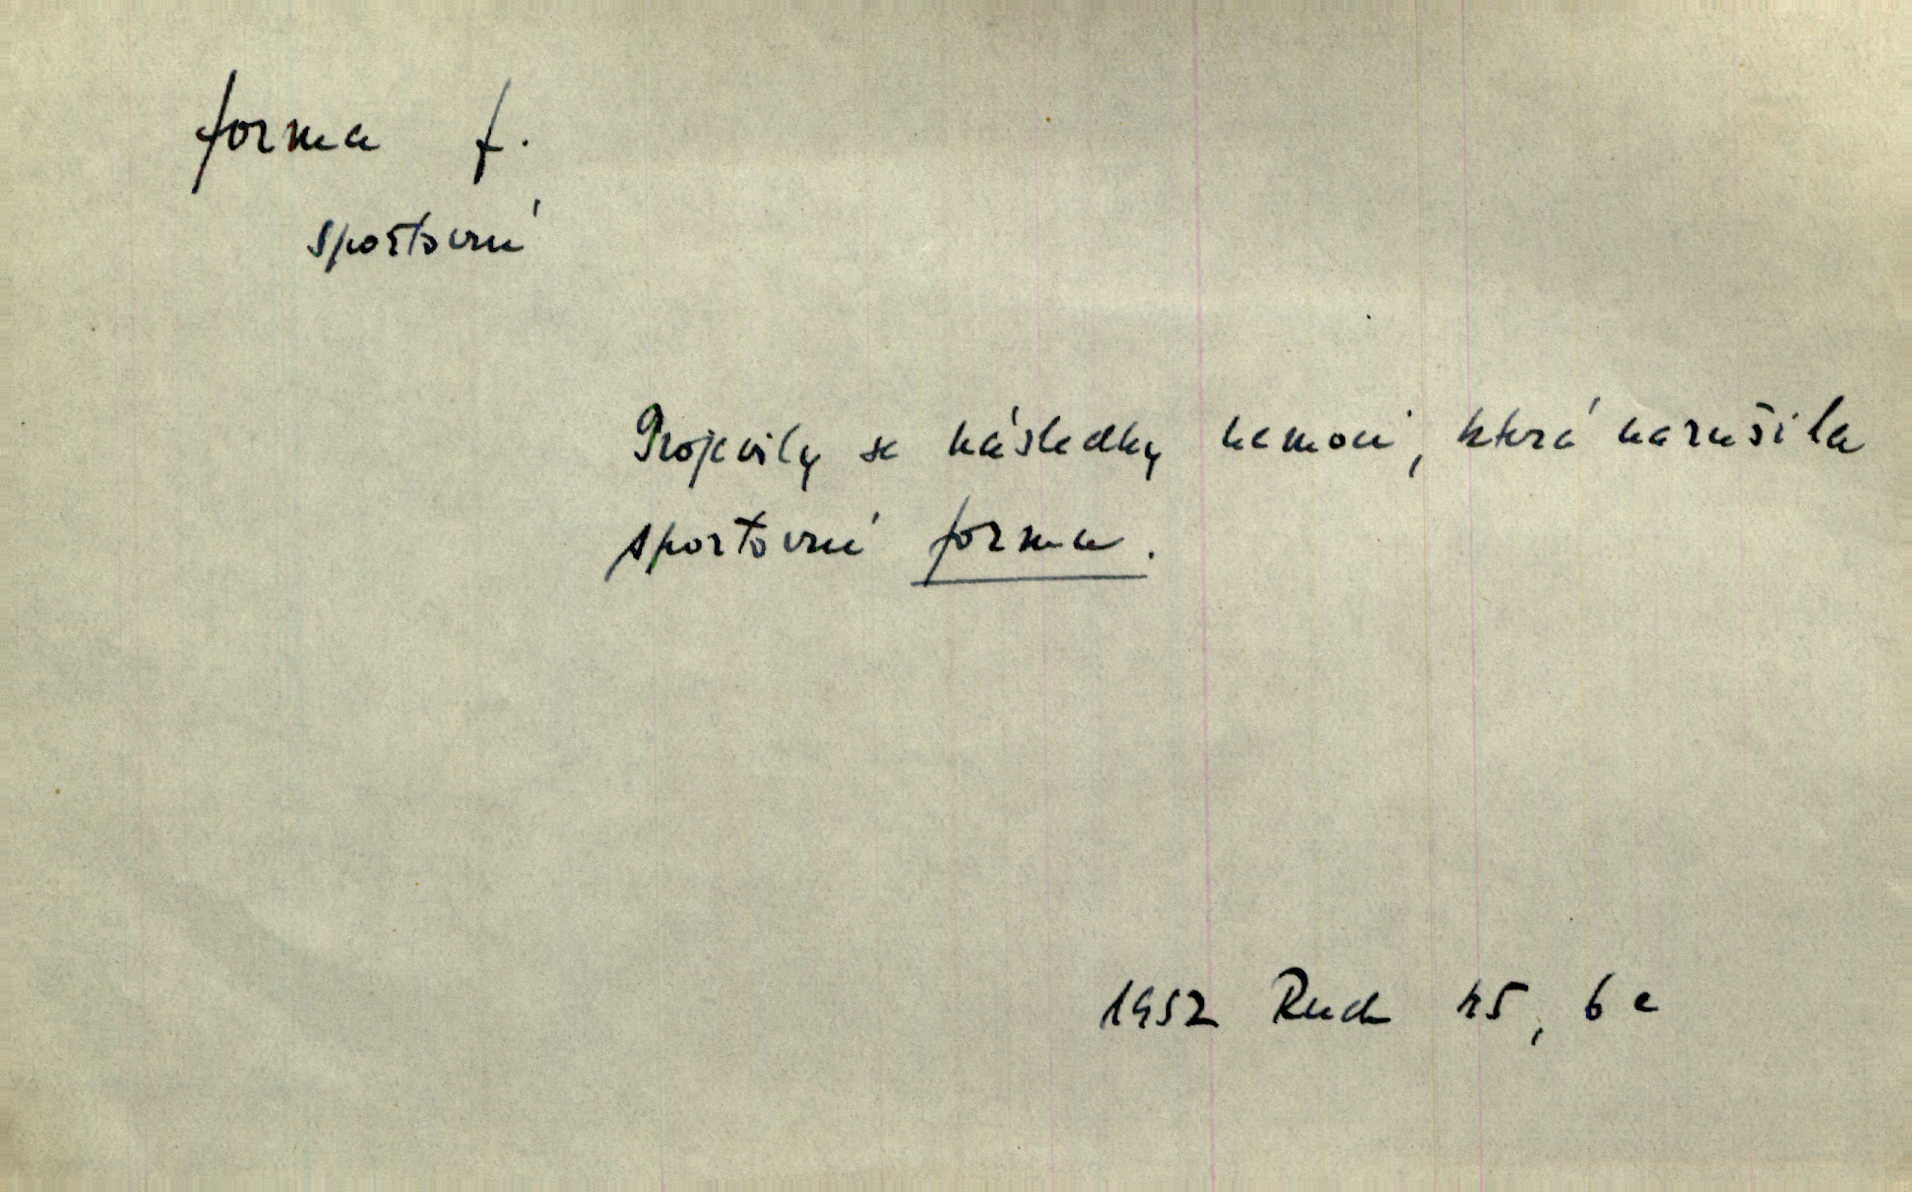 forma f.
sportovní
Projevily se následky nemoci, která narušila
sportovní forma.
1952 Rud 45, 6 c